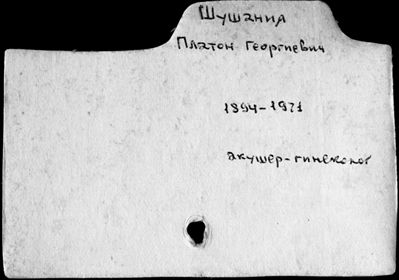 Шушания
Платон Георгиевич
1894-1971
акушер-гинеколог